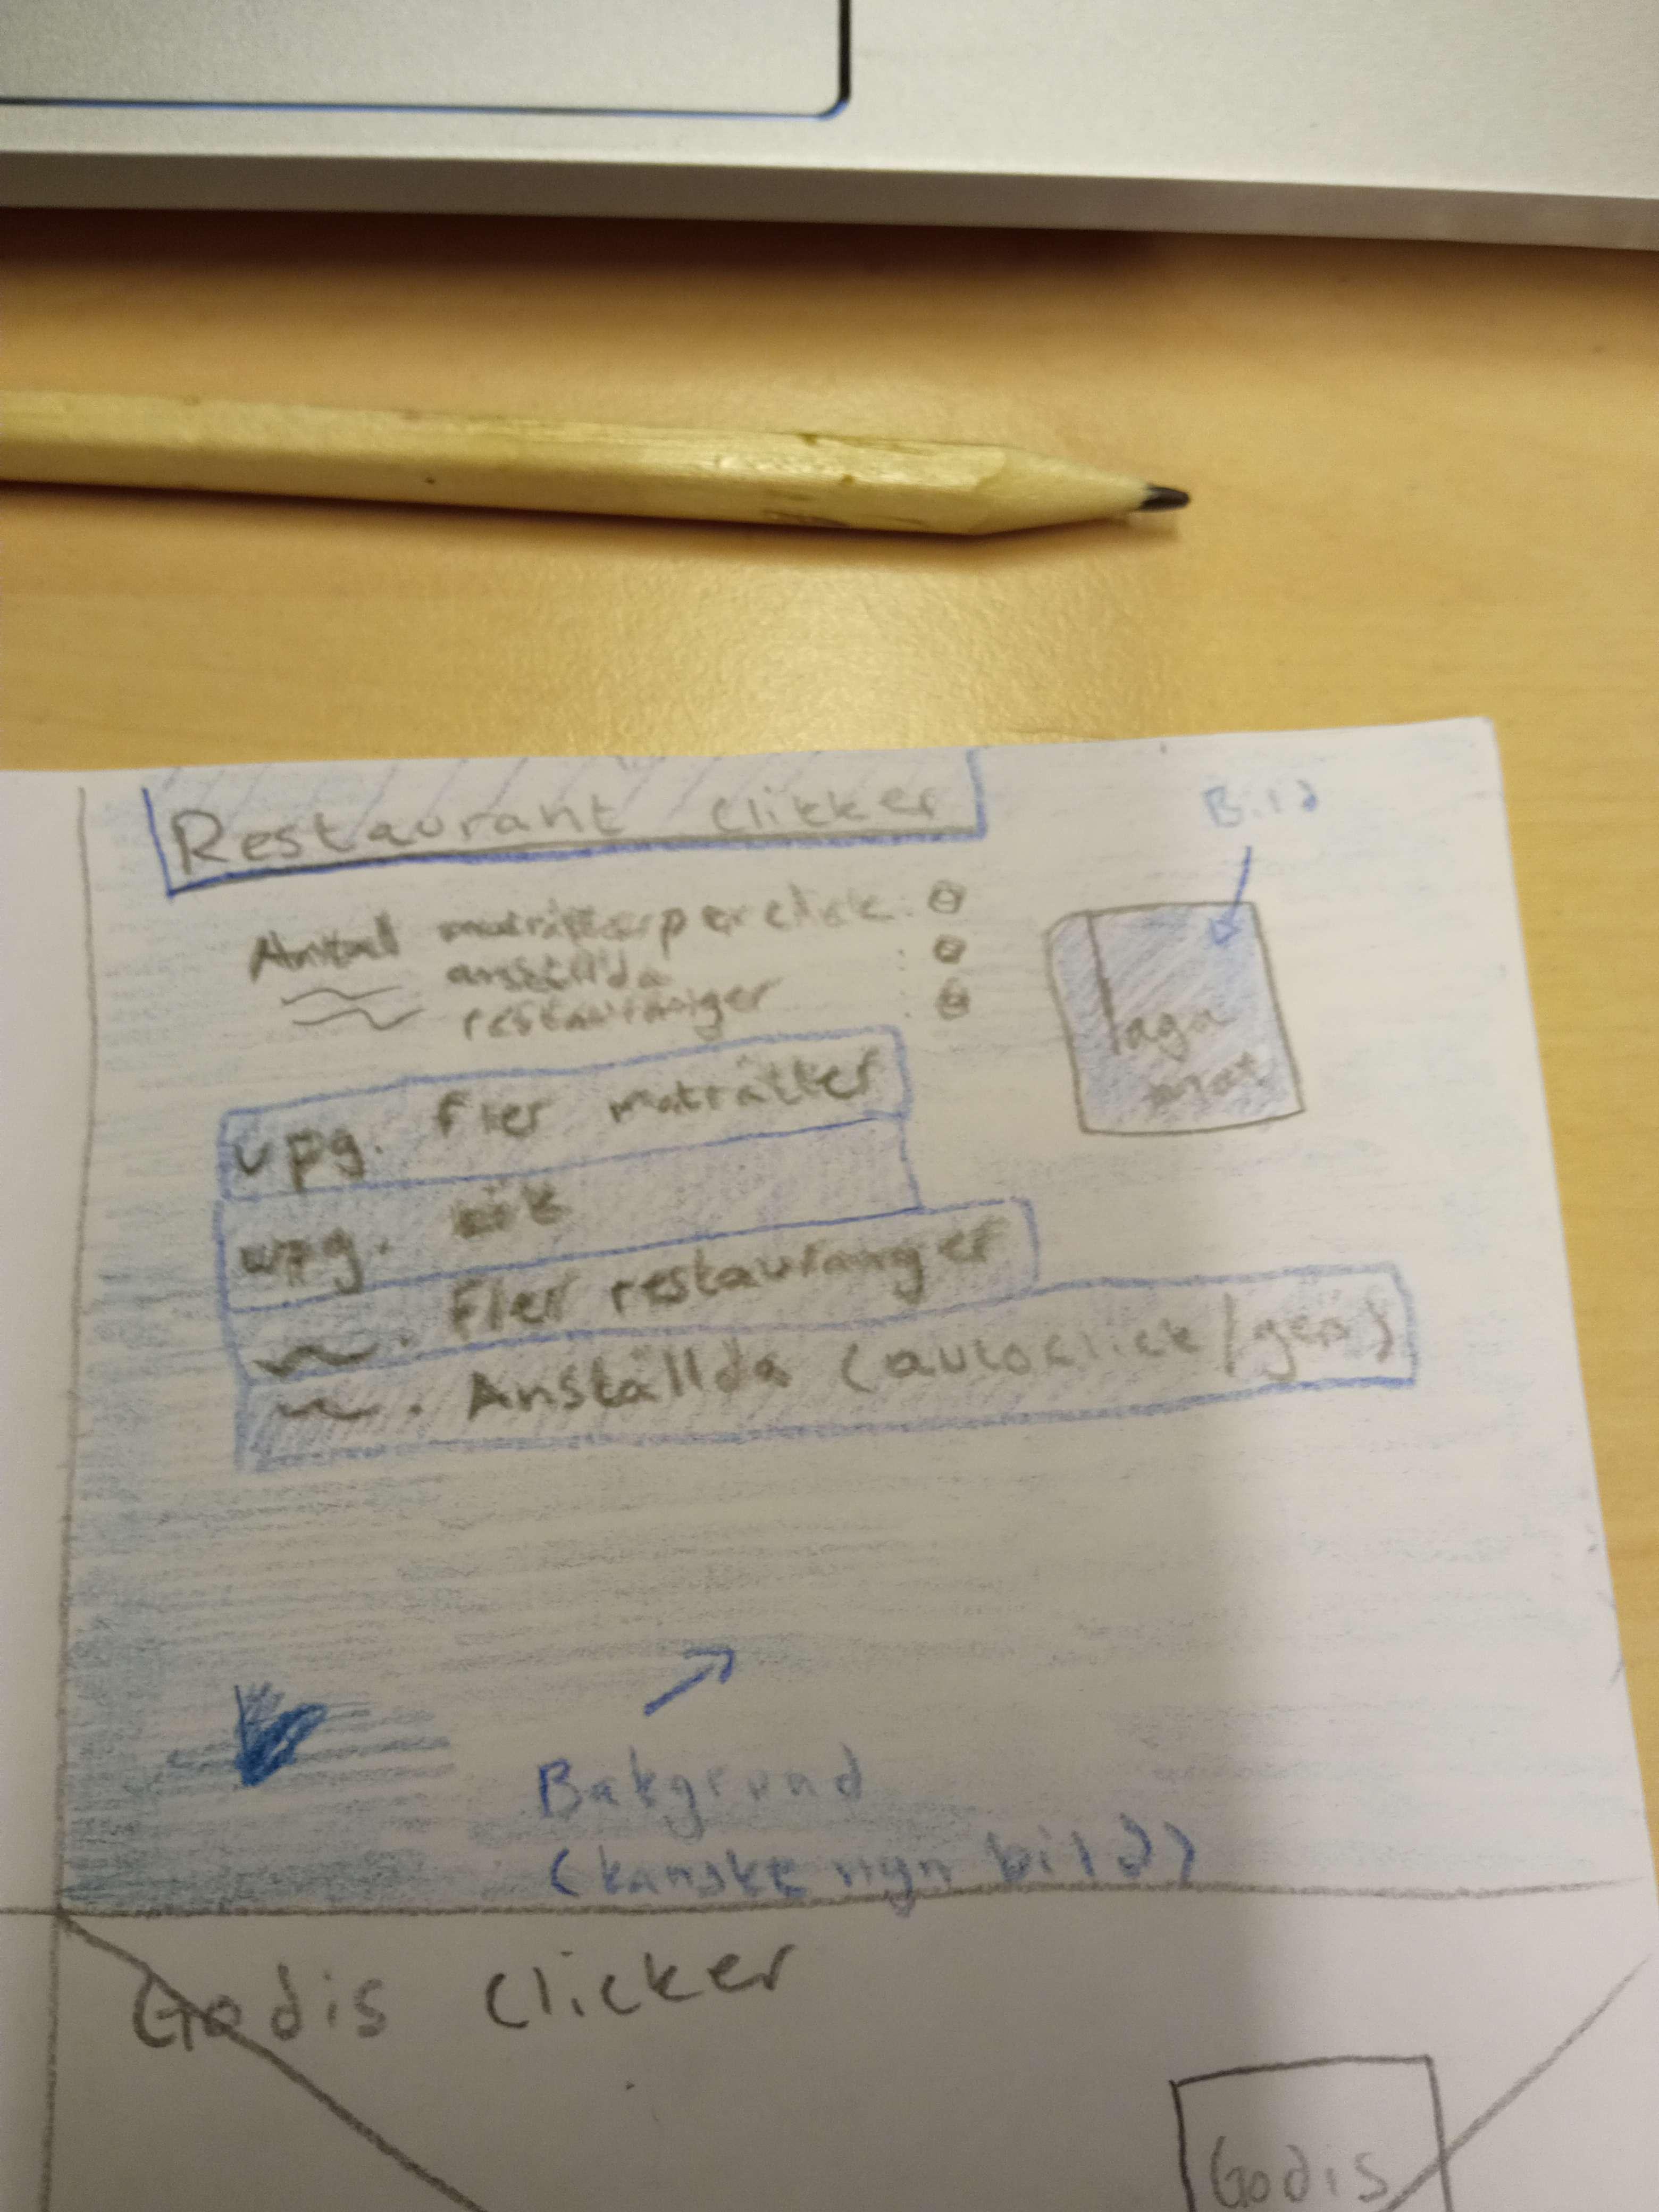 Restaurant clicker
Bild
Antall maträtter per click: 0
anställda : 0
restauranger : 0
laga
mat
upg. fler maträtter
upg. kök
fler restauranger
Anställda (autoclick/gen)
Bakgrund
(kanske ngn bild)
Godis clicker
Godis